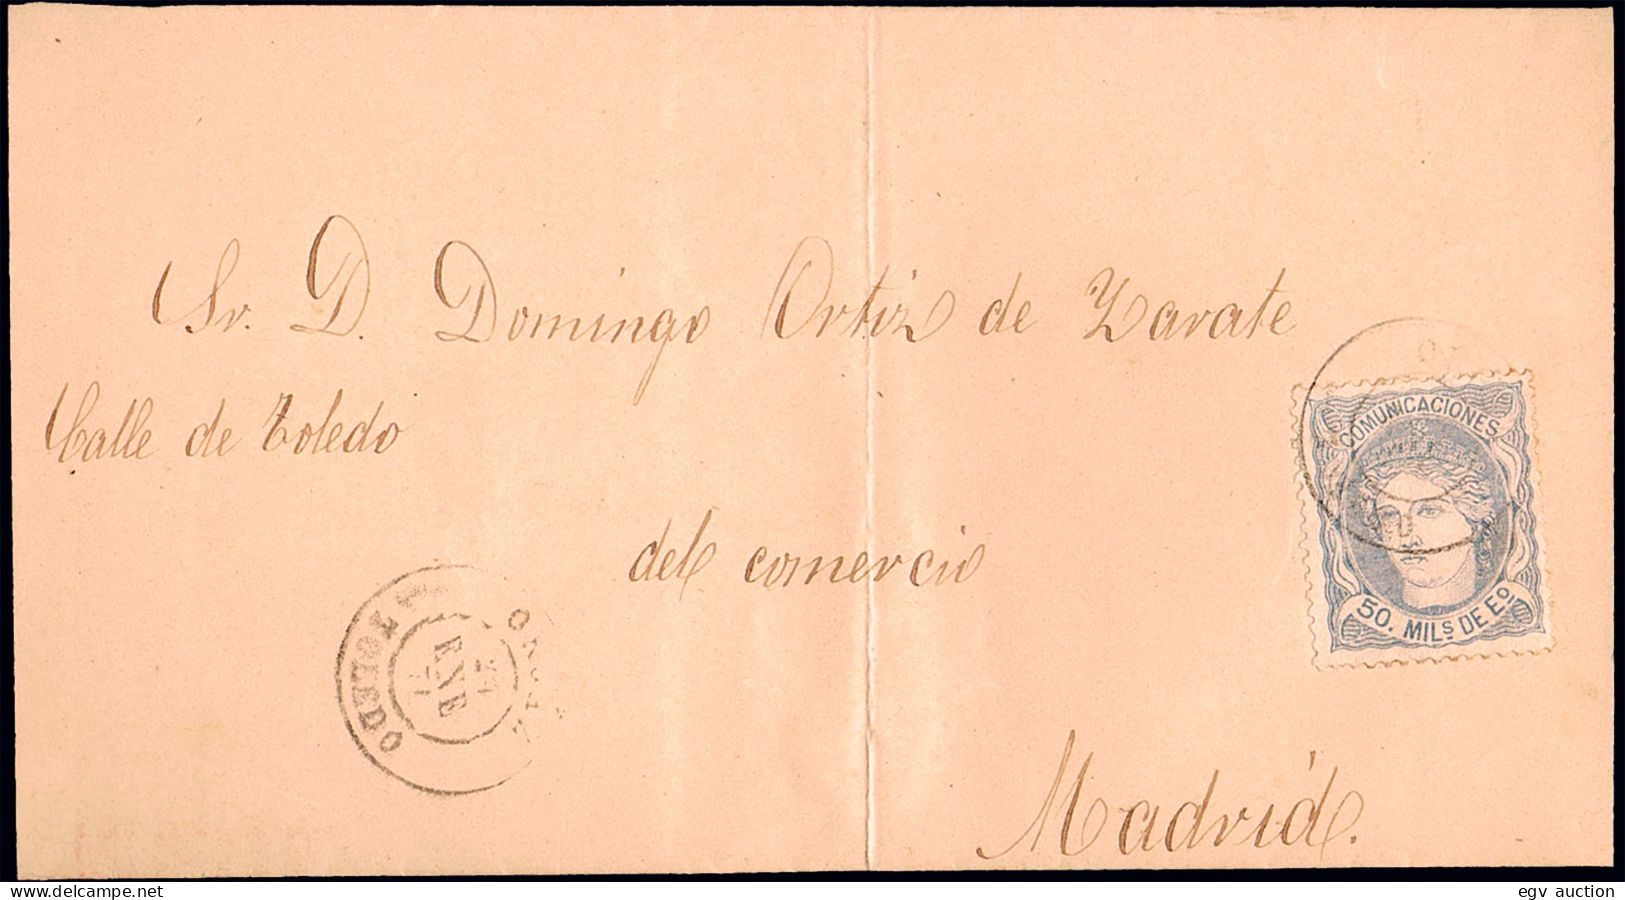 Sr. D. Domingo Ortiz de Zarate
Calle de Toledo
del comercio
Madrid.
COMUNICACIONES
50. MILS DE EO.
TOLEDO
ENE
www.delcampe.net
egv auction